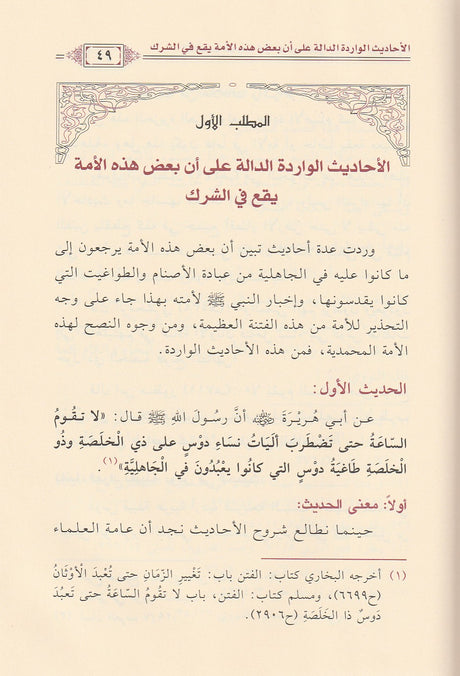 الأحاديث الواردة الدالة على أن بعض هذه الأمة يقع في الشرك
٤٩
المطلب الأول
الأحاديث الواردة الدالة على أن بعض هذه الأمة
يقع في الشرك
وردت عدة أحاديث تبين أن بعض هذه الأمة يرجعون إلى
ما كانوا عليه في الجاهلية من عبادة الأصنام والطواغيت التي
كانوا يقدسونها، وإخبار النبي ﷺ لأمته بهذا جاء على وجه
التحذير للأمة من هذه الفتنة العظيمة، ومن وجوه النصح لهذه
الأمة المحمدية، فمن هذه الأحاديث الواردة.
الحديث الأول:
عن أبي هُرَيْرَةَ رضي الله عنه أنَّ رسُولَ اللهِ ﷺ قال: «لا تقُومُ
السّاعَةُ حتى تَضْطَرِبَ ألَيَاتُ نسَاءِ دوْسٍ على ذي الخلَصَةِ وذُو
الْخلَصَةِ طاغِيَةُ دوْسٍ التي كانُوا يعْبُدُونَ في الْجَاهليَّةِ»(١).
أولاً: معنى الحديث:
حينما نطالع شروح الأحاديث نجد أن عامة العلماء
(١) أخرجه البخاري كتاب: الفتن باب: تَغْييرِ الزّمَانِ حتى تُعْبدَ الْأوْثَانُ
(ح٦٦٩٩)، ومسلم كتاب: الفتن، باب لا تقُومُ السّاعَةُ حتى تَعبُدَ
دَوسٌ ذا الخَلَصَةِ (ح٢٩٠٦).